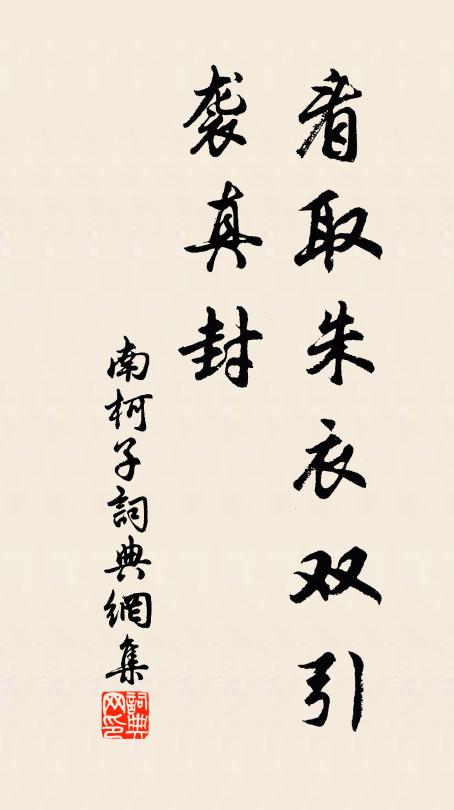 看取朱衣双引
袭真封
南柯子詞典網集
詞典网印